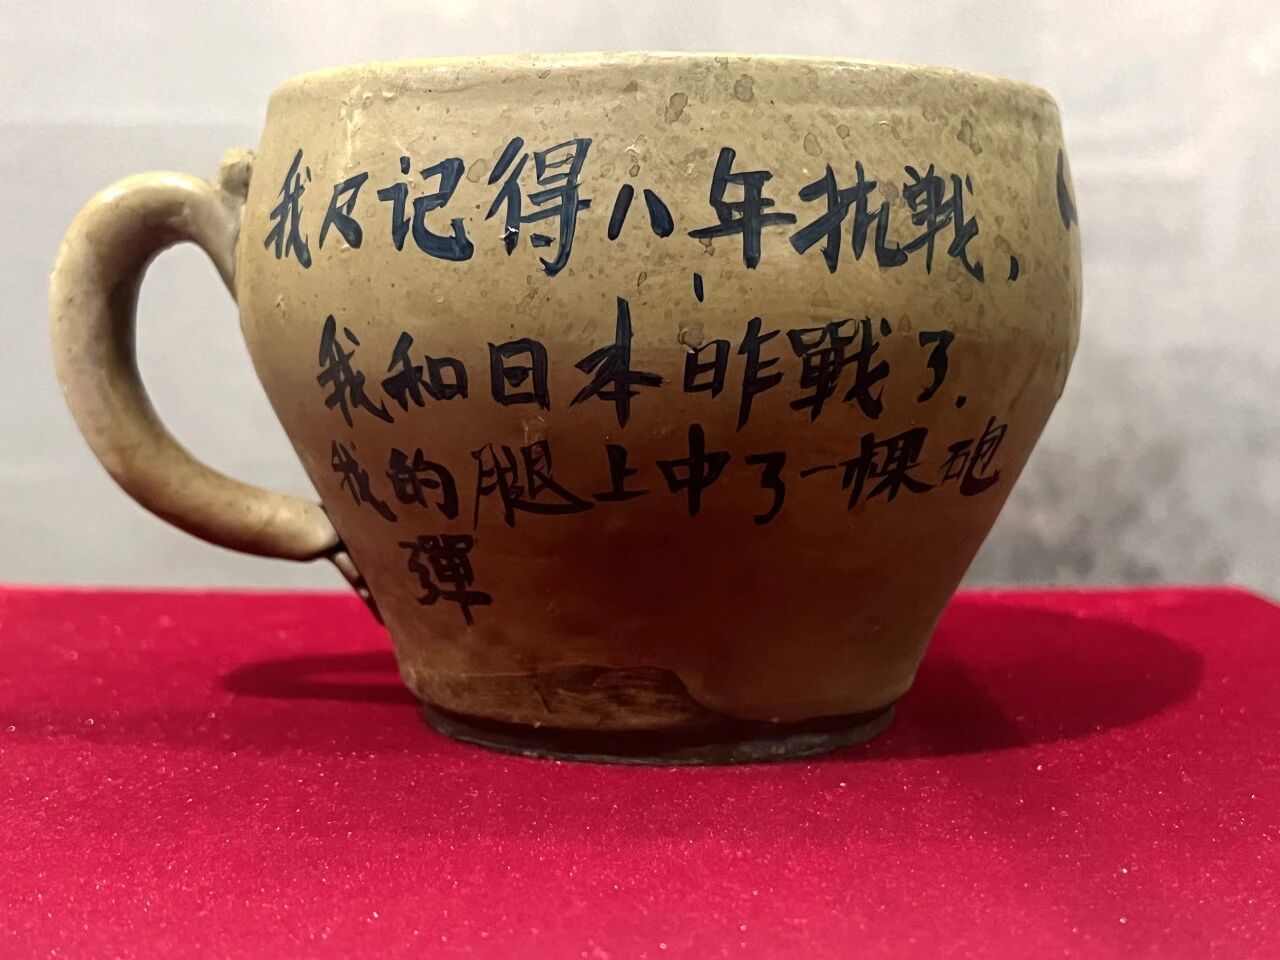 我只记得八年抗戦,
我和日本昨戰了.
我的腿上中了一棵砲
彈